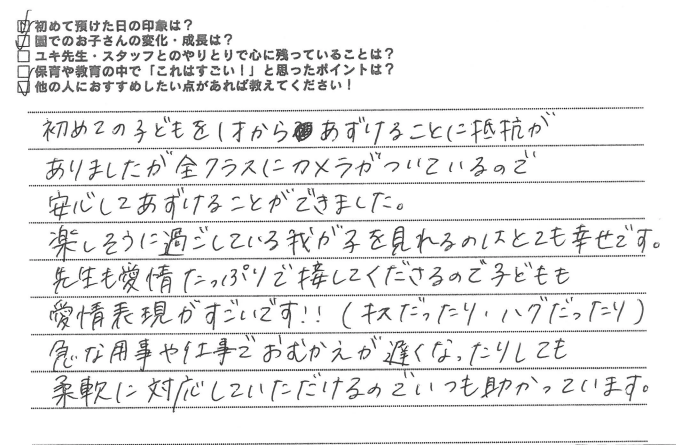 ☑初めて預けた日の印象は?
☑園でのお子さんの変化・成長は?
□ユキ先生・スタッフとのやりとりで心に残っていることは?
☑保育や教育の中で「これはすごい!」と思ったポイントは?
☑他の人におすすめしたい点があれば教えてください!
初めての子どもを1才からあずけることに抵抗が
ありましたが全クラスにカメラがついているので
安心してあずけることができました。
楽しそうに過ごしている我が子を見れるのはとても幸せです。
先生も愛情たっぷりで接してくださるので子どもも
愛情表現がすごいです!!(キスだったり、ハグだったり)
急な用事や仕事でおむかえが遅くなったりしても
柔軟に対応していただけるのでいつも助かっています。